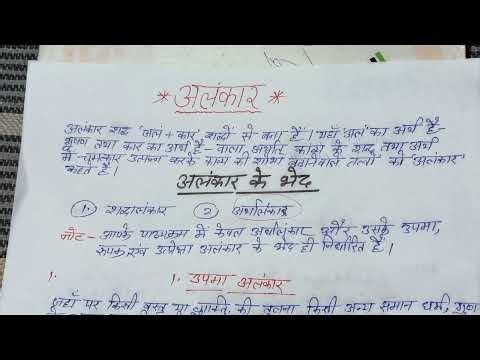 * अलंकार *
अलंकार शब्द 'अलं + कार' शब्दों से बना है। यहाँ 'अलं' का अर्थ है-
भूषण तथा कार का अर्थ है - वाला, अर्थात काव्य के शब्द तथा अर्थ
में चमत्कार उत्पन्न करके काव्य की शोभा बढ़ाने वाले तत्वों को 'अलंकार'
कहते हैं।
अलंकार के भेद
① शब्दालंकार ② अर्थालंकार
नोट- आपके पाठ्यक्रम में केवल अर्थालंकार और उसके उपमा,
रूपक एवं उत्प्रेक्षा अलंकार के भेद ही निर्धारित हैं।
१. १. उपमा अलंकार
जहाँ पर किसी वस्तु या व्यक्ति की तुलना किसी अन्य समान धर्म, गुण